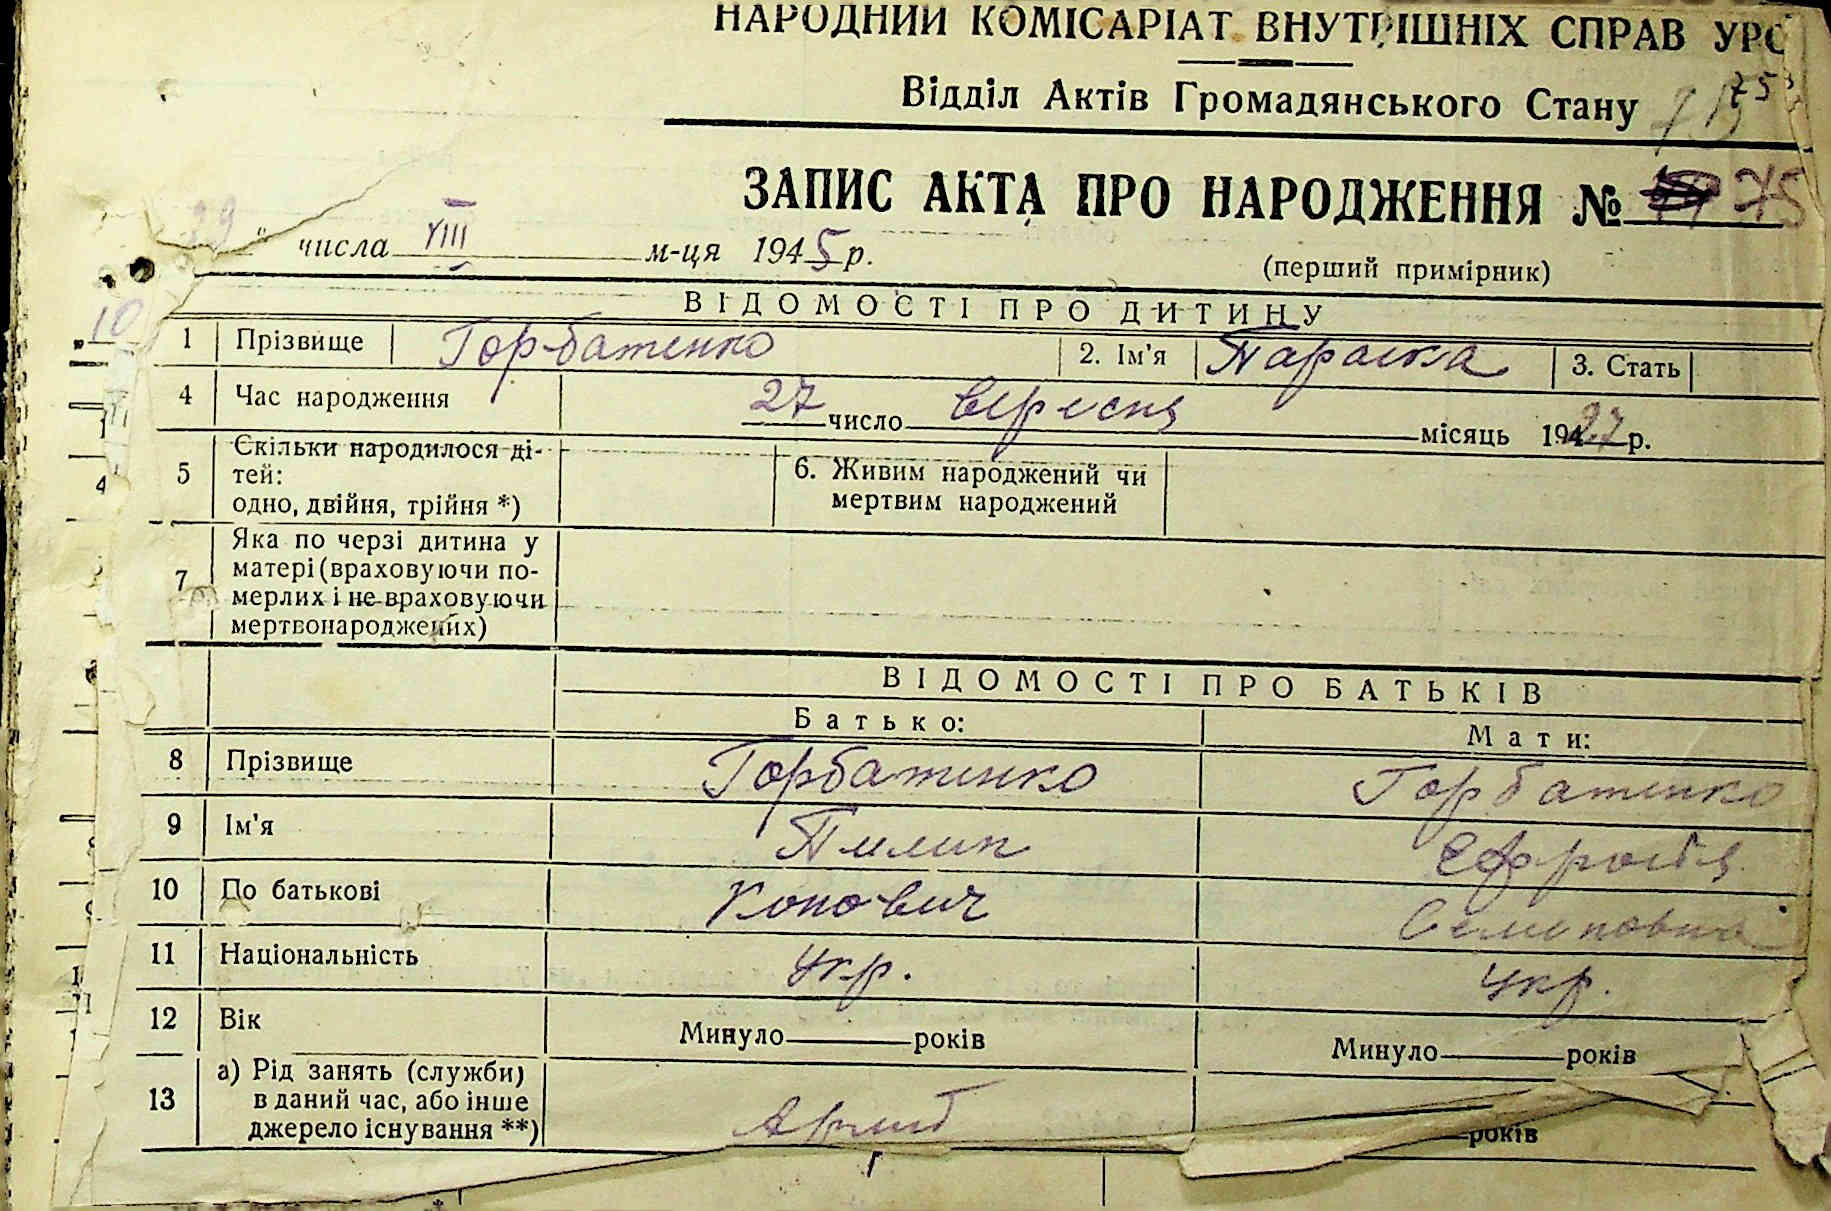 НАРОДНИЙ КОМІСАРІАТ ВНУТРІШНІХ СПРАВ УРС
Відділ Актів Громадянського Стану
75
ЗАПИС АКТА ПРО НАРОДЖЕННЯ № 75
29 " числа VIII м-ця 1945 р.
(перший примірник)
ВІДОМОСТІ ПРО ДИТИНУ
10
1 Прізвище Горбатенко 2. Ім'я Параска 3. Стать
4 Час народження 27 число вересня місяць 1927 р.
5 Скільки народилося ді-
тей:
одно, двійня, трійня *)
6. Живим народжений чи
мертвим народжений
7 Яка по черзі дитина у
матері (враховуючи по-
мерлих і не враховуючи
мертвонароджених)
ВІДОМОСТІ ПРО БАТЬКІВ
Батько: Мати:
8 Прізвище Горбатенко Горбатенко
9 Ім'я Пилип Ефросія
10 По батькові Конович Семеновна
11 Національність Укр. Укр.
12 Вік Минуло років Минуло років
13 а) Рід занять (служби)
в даний час, або інше
джерело існування **)
років